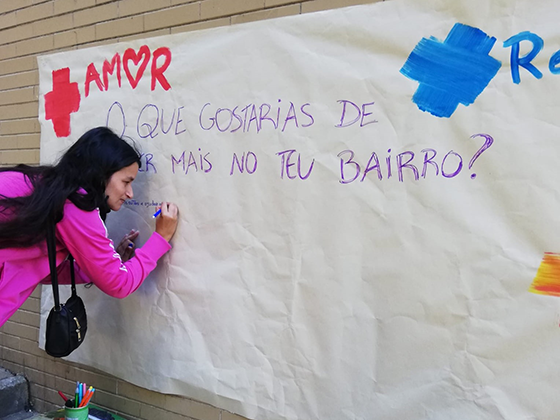 + AMOR
+ Re
O QUE GOSTARIAS DE
ER MAIS NO TEU BAIRRO?